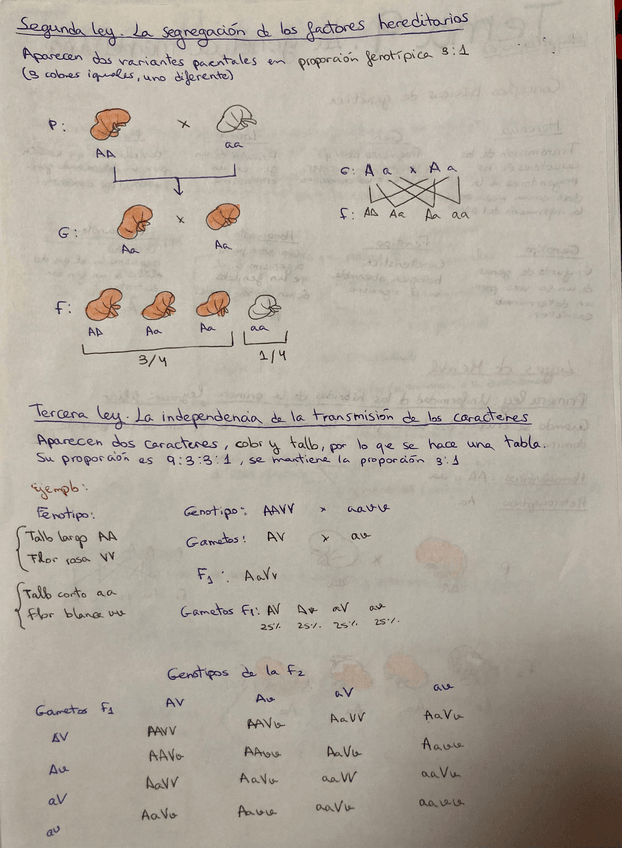 Segunda ley. La segregación de los factores hereditarios
Aparecen dos variantes paentales en proporción fenotípica 3:1
(3 cobres iguales, uno diferente)
P: x
AA aa
G: A a x A a
f: AA Aa Aa aa
G: x
Aa Aa
f:
AA Aa Aa aa
3/4 1/4
Tercera ley. La independencia de la transmisión de los caracteres
Aparecen dos caracteres, color y tallo, por lo que se hace una tabla.
Su proporción es 9:3:3:1, se mantiene la proporción 3:1
Ejemplo:
Fenotipo: Genotipo: AAVV x aavv
Tallo largo AA Gametos: AV x av
Flor rosa VV
F1: AaVv
Tallo corto aa
Flor blanca vv Gametos F1: AV Av aV av
25% 25% 25% 25%
Genotipos de la F2
Gametos F1 AV Av aV av
AV AAVV AAVv AaVV AaVv
Av AAVv AAvv AaVv Aavv
aV AaVV AaVv aaVV aaVv
av AaVv Aavv aaVv aavv